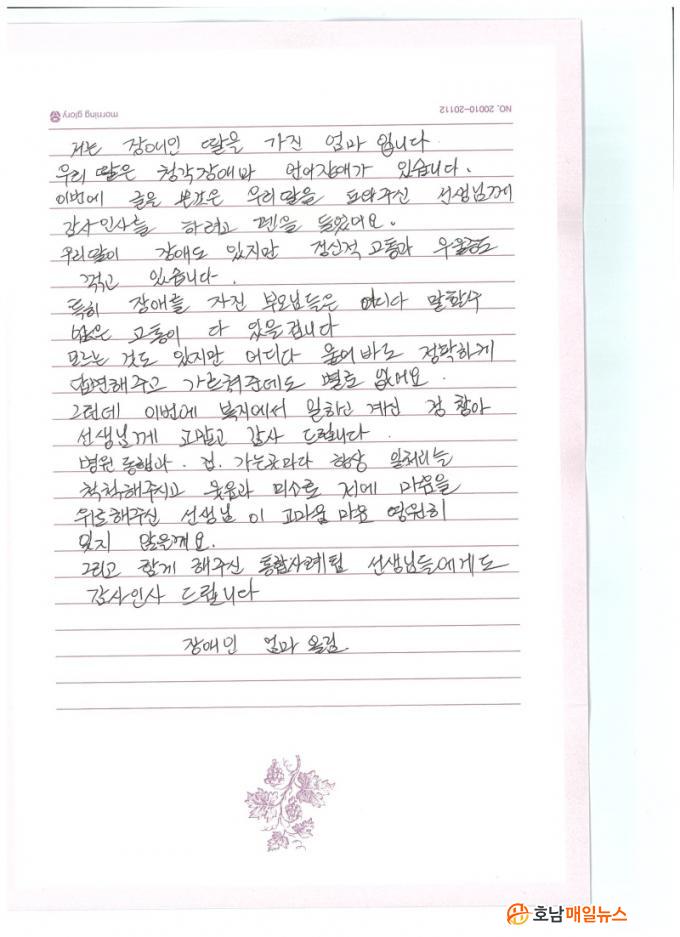 NO. 20010-20112
morning glory
저는 장애인 딸을 가진 엄마 입니다
우리 딸은 청각장애과 언어장애가 있습니다.
이번에 글을 쓴것은 우리딸을 도와주신 선생님께
감사인사를 하려고 펜을 들었어요.
우리딸이 장애도 있지만 정신적 고통과 우울증도
겪고 있습니다.
특히 장애를 자진 부모님들은 어디다 말할수
없은 고통이 다 있을겁니다
모르는 것도 있지만 어디다 물어바도 정확하게
답변해주고 가르쳐준데도 별로 없어요.
그런데 이번에 복지에서 일하고 계신 정
선생님께 고맙고 감사 드립니다.
병원동행과. 집. 가는곳마다 항상 일처리를
척척해주시고 웃음과 미소로 저에 마음을
위로해주신 선생님 이 고마움 마음 영원히
잊지 않을께요.
그리고 함께 해주신 통합사례팀 선생님들에게도
감사인사 드립니다
장애인 엄마 올림.
호남매일뉴스